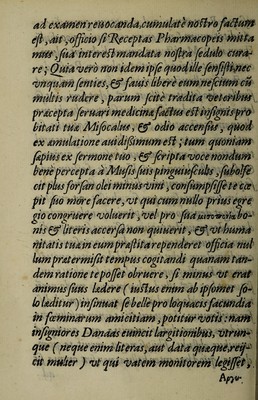 ad examen reuocanda, cumulatè nostro factum
est, ait, officio si Receptas Pharmacopeis mitta
mus, sua interest mandata nostra sedulo cura-
re; Quia verò non idem ipse quod ille sensisti, nec
vnquam senties, & sauis liberè eum nescium cũ
multis rudere, parum scitè tradita veteribus
præcepta seruari medicina factus est insignis pro
bitati tuæ Misocalus, & odio accensus, quod
ex æmulatione auidissimum est; tum quoniam
sæpius ex sermone tuo, & scripta voce nondum
bene percepta à Musis suis pinguiusculis, subolfe
cit plus forsan olei minus vini, consumpsisse te cœ
pit suo more facere, vt qui cum nullo prius egre
gio congruere voluerit, vel pro sua bo-
nis & literis accersa non quiuerit, & vt huma
nitatis tuæ in eum præstita rependeret officia nul
lum prætermisit tempus cogitandi quanam tan-
dem ratione te posset obruere, si minus vt erat
animus suus lædere (iustus enim ab ipsomet so-
lo læditur) insinuat se bellè pro loquacis facundia
in fœminarum amicitiam, potitur votis: nam
insigniores Danäas euincit largitionibus, vtrun-
que (neque enim literas, aut data quæque reij-
cit mulier) vt qui vatem monitorem legisset,
Apyr.